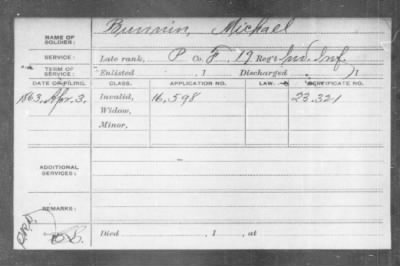 NAME OF SOLDIER: Bunnin, Michael
SERVICE: Late rank, P Co. F, 19 Reg't Ind. Inf.
TERM OF SERVICE: Enlisted , 1 Discharged , 1
DATE OF FILING. CLASS. APPLICATION NO. LAW. CERTIFICATE NO.
1863, Apr. 3. Invalid, 16.598 23.321
Widow,
Minor,
ADDITIONAL SERVICES:
REMARKS:
Died , 1 , at